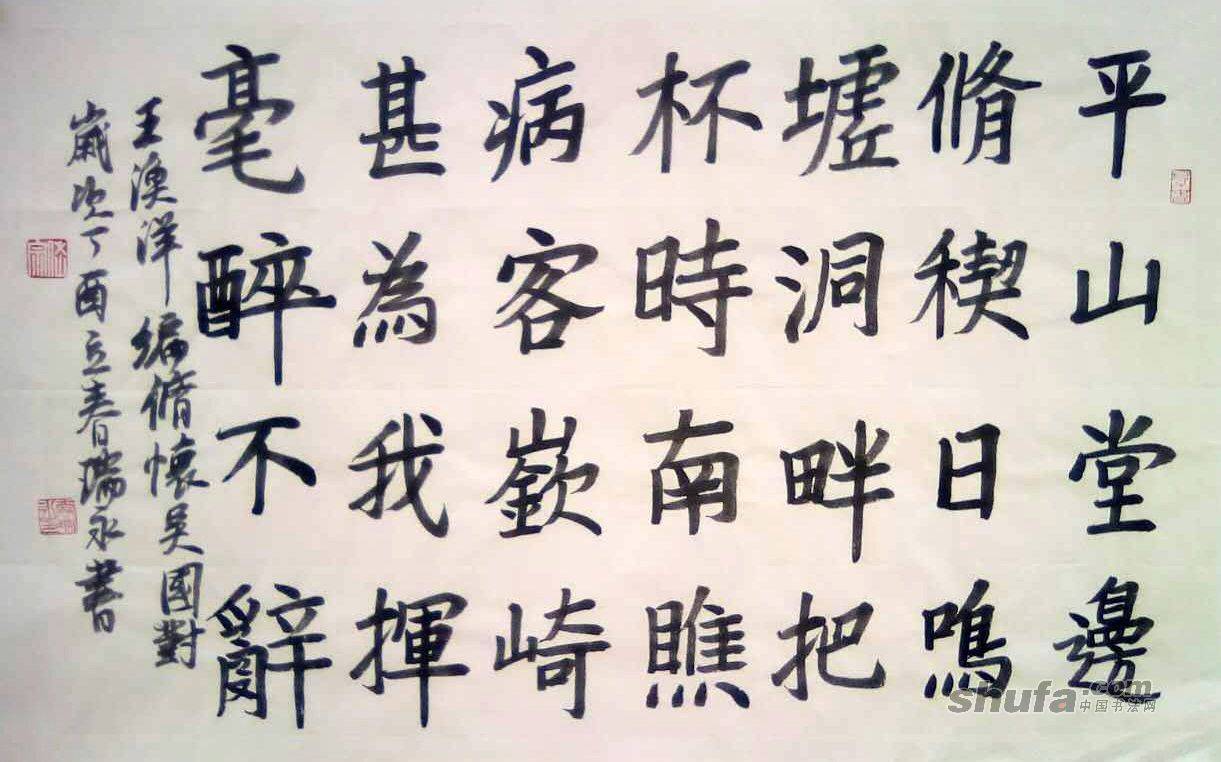 平山堂邊
脩禊日鳴
墟洞畔把
杯時南瞧
病客嶔崎
甚為我揮
毫醉不辭
王漁洋編脩懷吳國對
歲次丁酉立春瑞永書
shufa.com
中国书法网